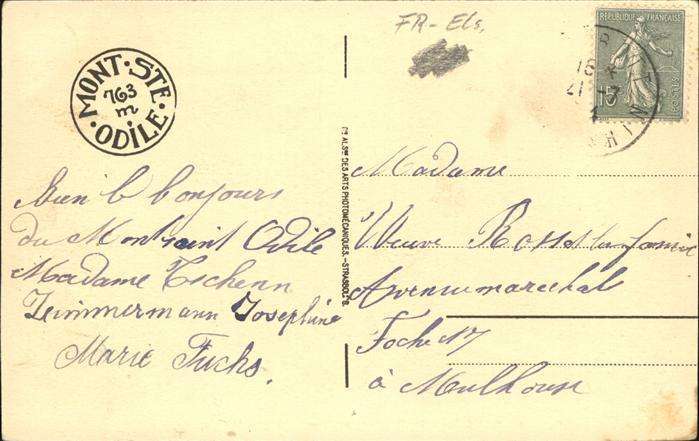 FR-Els.
MONT·STE·ODILE·
763
m
RÉPUBLIQUE FRANÇAISE
POSTES
15
Bien le bonjours
du Montsaint Odile
Madame Tschenn
Zimmermann Josephine
Marie Fuchs.
Cie ALSne DES ARTS PHOTOMÉCANIQUES.-STRASBG
Madame
Veuve
Avenue marechal
Foche 17
à Mulhouse